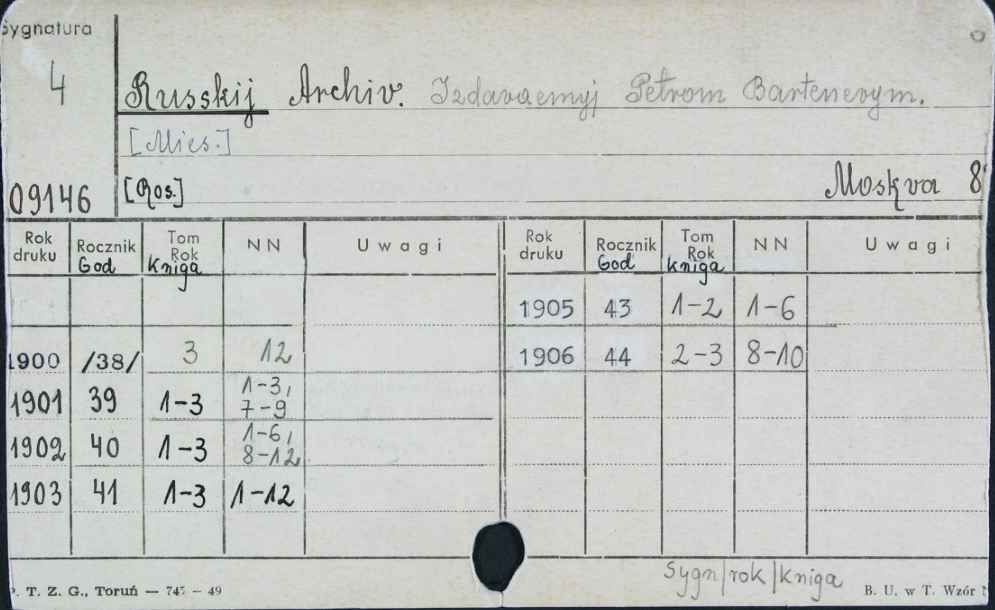 Sygnatura
4
Russkij Archiv. Izdavaemyj Petrom Bartenevym.
[Mies.]
09146 [Ros.] Moskva 8°
Rok druku | Rocznik God | Tom Rok Kniga | NN | Uwagi | Rok druku | Rocznik God | Tom Rok Kniga | NN | Uwagi
1905 43 1-2 1-6
1900 /38/ 3 12 1906 44 2-3 8-10
1901 39 1-3 1-3, 7-9
1902 40 1-3 1-6, 8-12
1903 41 1-3 1-12
Sygn/rok/kniga
T. Z. G., Toruń — 74 – 49 B. U. w T. Wzór